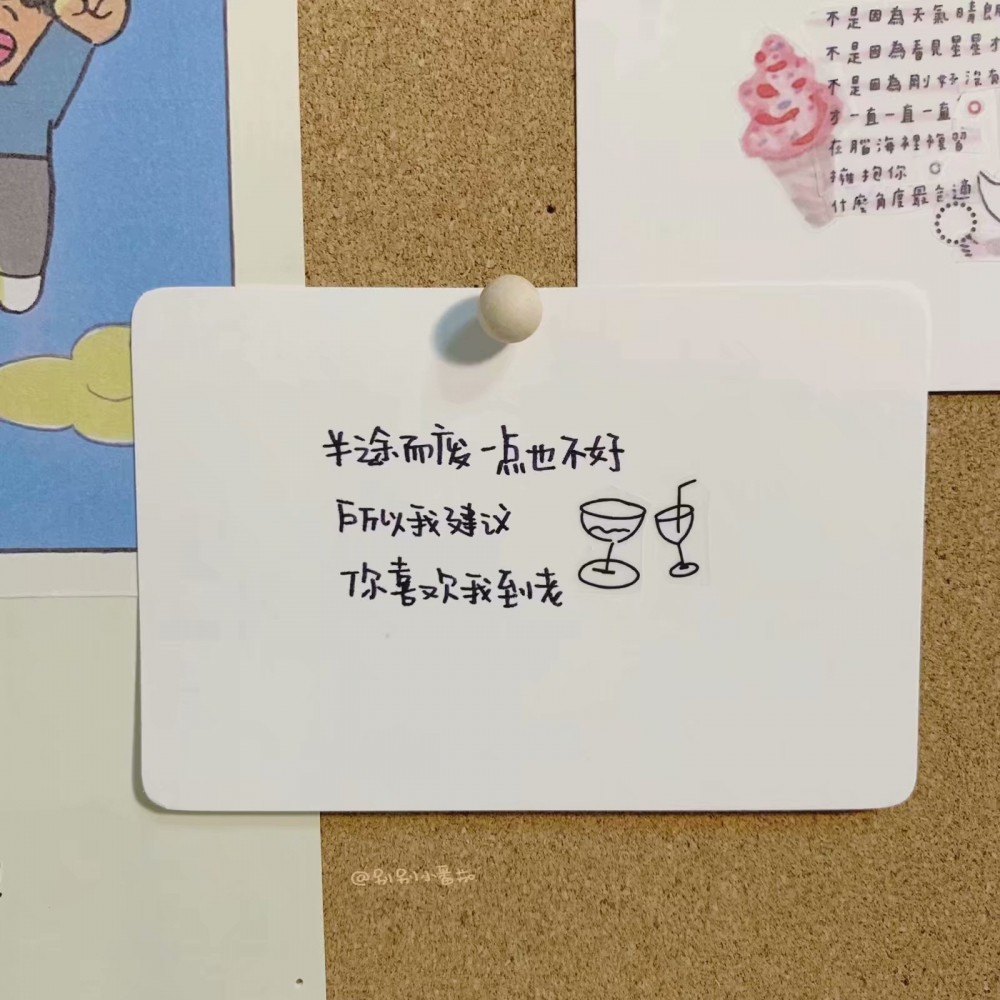 不是因為天氣晴朗
不是因為看見星星才
不是因為剛好沒有
才一直一直一直
在腦海裡複習
擁抱你
什麼角度最合適
半途而废一点也不好
所以我建议
你喜欢我到老
@别别小番茄